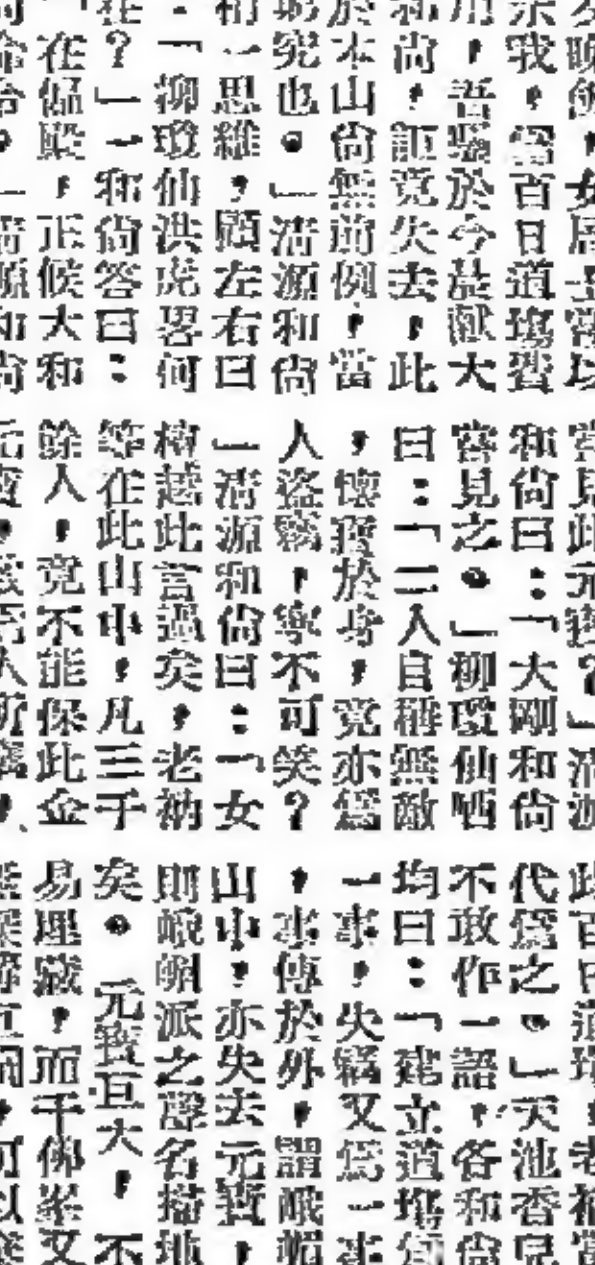 示我，留百日道塲費
和尚，詎竟失去，此
於本山尚無前例，當
究也。」清源和尚
一思維，顧左右曰
：「柳瓊仙洪虎畧何
在？」一和尚答曰：
在偏殿，正候大和
嘗見此元寶？」清源
和尚曰：「大剛和尚
嘗見之。」柳瓊仙哂
曰：「二人自稱無敵
，懷寶於身，竟亦爲
人盜竊，寧不可笑？
」清源和尚曰：「女
檀越此言過矣，老衲
等在此山中，凡三千
餘人，竟不能保此金
此百日道塲，老衲當
代爲之。」天池香兒
不敢作一語，各和尚
均曰：「建立道塲爲
一事，失竊又爲一事
，事傳於外，謂峨嵋
山中，亦失去元寶，
則峨嵋派之聲名掃地
矣。元寶巨大，不
易埋藏，而千佛峯又